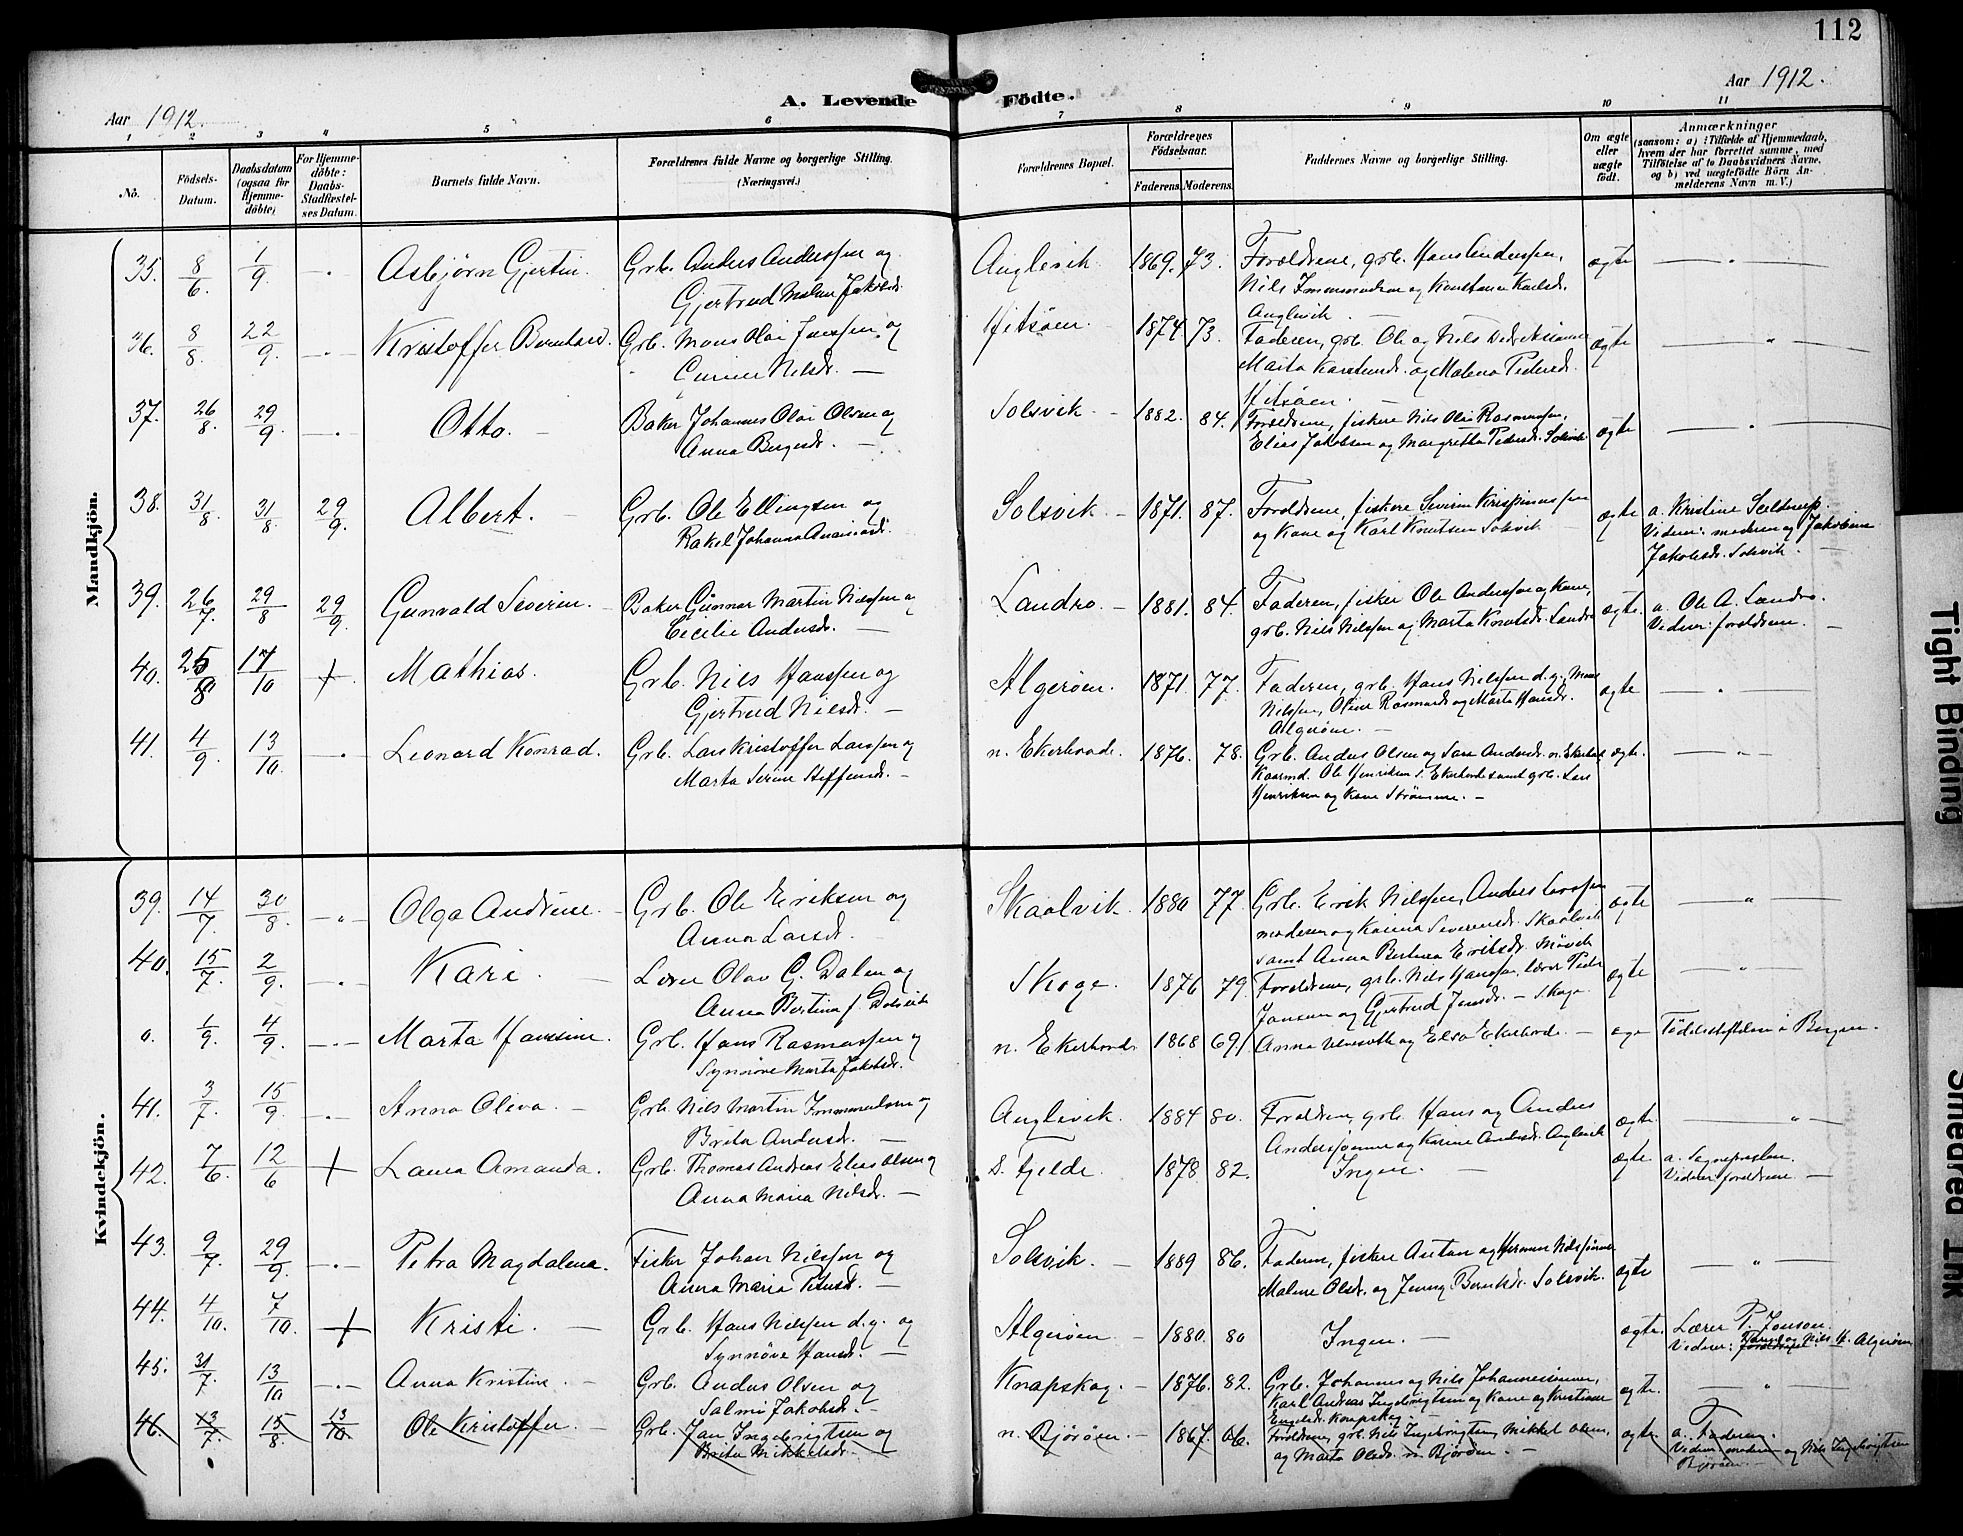 112
Aar 1912.
A. Levende Födte.
Aar 1912.
1 2 3 4 5 6 7 8 9 10 11
No.
Födsels-Datum.
Daabsdatum (ogsaa for Hjemme-döbte)
For Hjemme-döbte: Daabs-Stadfæstel-ses Datum.
Barnets fulde Navn.
Forældrenes fulde Navne og borgerlige Stilling.
(Næringsvei.)
Forældrenes Bopæl.
Forældrenes Födselsaar.
Faderens. Moderens.
Faddernes Navne og borgerlige Stilling.
Om ægte eller uægte födt.
Anmærkninger
(saasom: a) i Tilfælde af Hjemmedaab, hvem der har forrettet samme, med Tilföielse af to Daabsvidners Navne, og b) ved uægtefödte Börn An-melderens Navn m. V.)
Mandkjön.
35. 8/6. 1/9. Asbjørn Gjertin. Grb. Anders Anderssen og Anglevik. 1869. 73. Forældrene, grb. Hans Anderssen, ægte
Gjertrud Malene Jakobsd. Nils Immanuelsen og Konstanse Karlsd.
Anglevik.
36. 8/8. 22/9. Kristoffer Bernhard. Grb. Mons Olai Janssen og Hitsøen. 1874. 73. Faderen, grb. Ole og Nils ægte
Nilsd. — Marta og Malena Pedersd.
Hitsøen. —
37. 26/8. 29/9. Otto. — Baker Johannes Olai Olsen og Solsvik. — 1882. 84. Forældrene, fiskere Nils Olai Rasmussen, ægte
Anna Bergesd. — Elias Jakobsen og Margretha Pedersd. Solsvik
38. 31/8. 31/8. 29/9. Albert. — Grb. Ole Ellingsen og Solsvik. — 1871. 87. Forældrene, fiskere Severin Krispinussen ægte a. Kristine Selderup.
Rakel Johanna og Kone og Karl Knutsen Solsvik Vidner: moderen og Jakobine
Jakobsd. Solsvik. —
39. 26/7. 29/8 29/9. Gunvald Severin. — Baker Gunnar Martin Nilssen og Landro. — 1881. 84. Faderen, fisker Ole Anderssen og Kone, ægte. a. Ole A. Landro.
Cecilie Andersd. — grb. Nils Nilssen og Marta Knutsd. Landro Vidner: forældrene. —
40. 25/8 17/10 + Mathias. Grb. Nils Hanssen og Algerøen. 1871. 77. Faderen, grb. Hans Nilssen d.y., Mons ægte
Gjertrud Nilsd. — Nilssen, Oline Rasmusd. og Marta Hansd.
Algerøen. —
41. 4/9. 13/10. Leonard Konrad. Grb. Lars Kristoffer Larssen og n. Ekerhovde. 1876. 78. Grb. Anders Olsen og Sara Andersd. n. Ekerhovd ægte.
Marta Serine Steffensd. — Ole Henriksen s. Ekerhovde samt grb. Lars
Henriksen og Kone Strømme. —
Kvindekjön.
39. 14/7. 30/8. Olga Andrine. — Grb. Ole Eriksen og Skaalvik. 1880 77. Grb. Erik Nilssen, Anders Larssen ægte
Anna Larsd. moderen og Karina Severinsd. Skaalvik
samt Anna Bertina Eriksd.
40. 15/7. 2/9. Kari. — Lærer Olav G. Dalen og Skoge. 1876 79. Forældrene, grb. Nils Hanssen, lærer Peder ægte
Anna Bertina f. Jansen og Gjertrud Jansd. — Skoge.
o. 1/9. 4/9. Marta Hansine. Grb. Hans Rasmussen og n. Ekerhovde 1868 69. Anna og Elsa Ekerhovde. — Fødselsstiftelsen i Bergen.
Synnøve Marta Jakobsd.
41. 3/7. 15/9. Anna Oleva. — Grb. Nils Martin Immanuelsen og Anglevik. 1884 80. Forældrene, grb. Hans og Anders ægte.
Brita Andersd. — Anderssønner og Karine Andersd. Anglevik
42. 7/6. 12/6 + Laura Amanda. Grb. Thomas Andreas Elias Olsen og S. Fjelde. 1878 82. Ingen. — ægte. a. Sognepresten.
Anna Maria Nilsd. — Vidner forældrene. —
43. 9/7. 29/9. Petra Magdalena. Fisker Johan Nilssen og Solsvik. — 1889 86. Faderen, fiskere Anton og Herman Nilssønner ægte
Anna Maria Petersd. — Malene Olsd. og Jenny Berntsd. Solsvik.
44. 4/10. 7/10. + Kristi. — Grb. Hans Nilssen d.y. og Algerøen — 1880. 80 Ingen. — ægte. Lærer P. Jonson.
Synnøve Hansd. — Vidner: og Nils H. Algerøen
45. 31/7. 13/10 Anna Kristine. — Grb. Anders Olsen og Knapskog. — 1876. 82. Grb. Johannes og Nils Johannessønner, ægte.
Salmi Jakobsd. — Karl Andreas Ingebrigtsen og Kone og Kristiane
Engelsd. Knapskog. —
46. 13/7. 15/8. 13/10 Ole Kristoffer. Grb. Jan Ingebrigtsen og n. Bjørøen. — 1867. Forældrene, grb. Nils Ingebrigtsen, Mikkel Olsen, ægte. a. Faderen.
Brita Mikkelsd. og Marta Olsd. n. Bjørøen. — Vidner moderen og Nils Ingebrigtsen
Bjørøen. —
Tight Binding
Smeared Ink